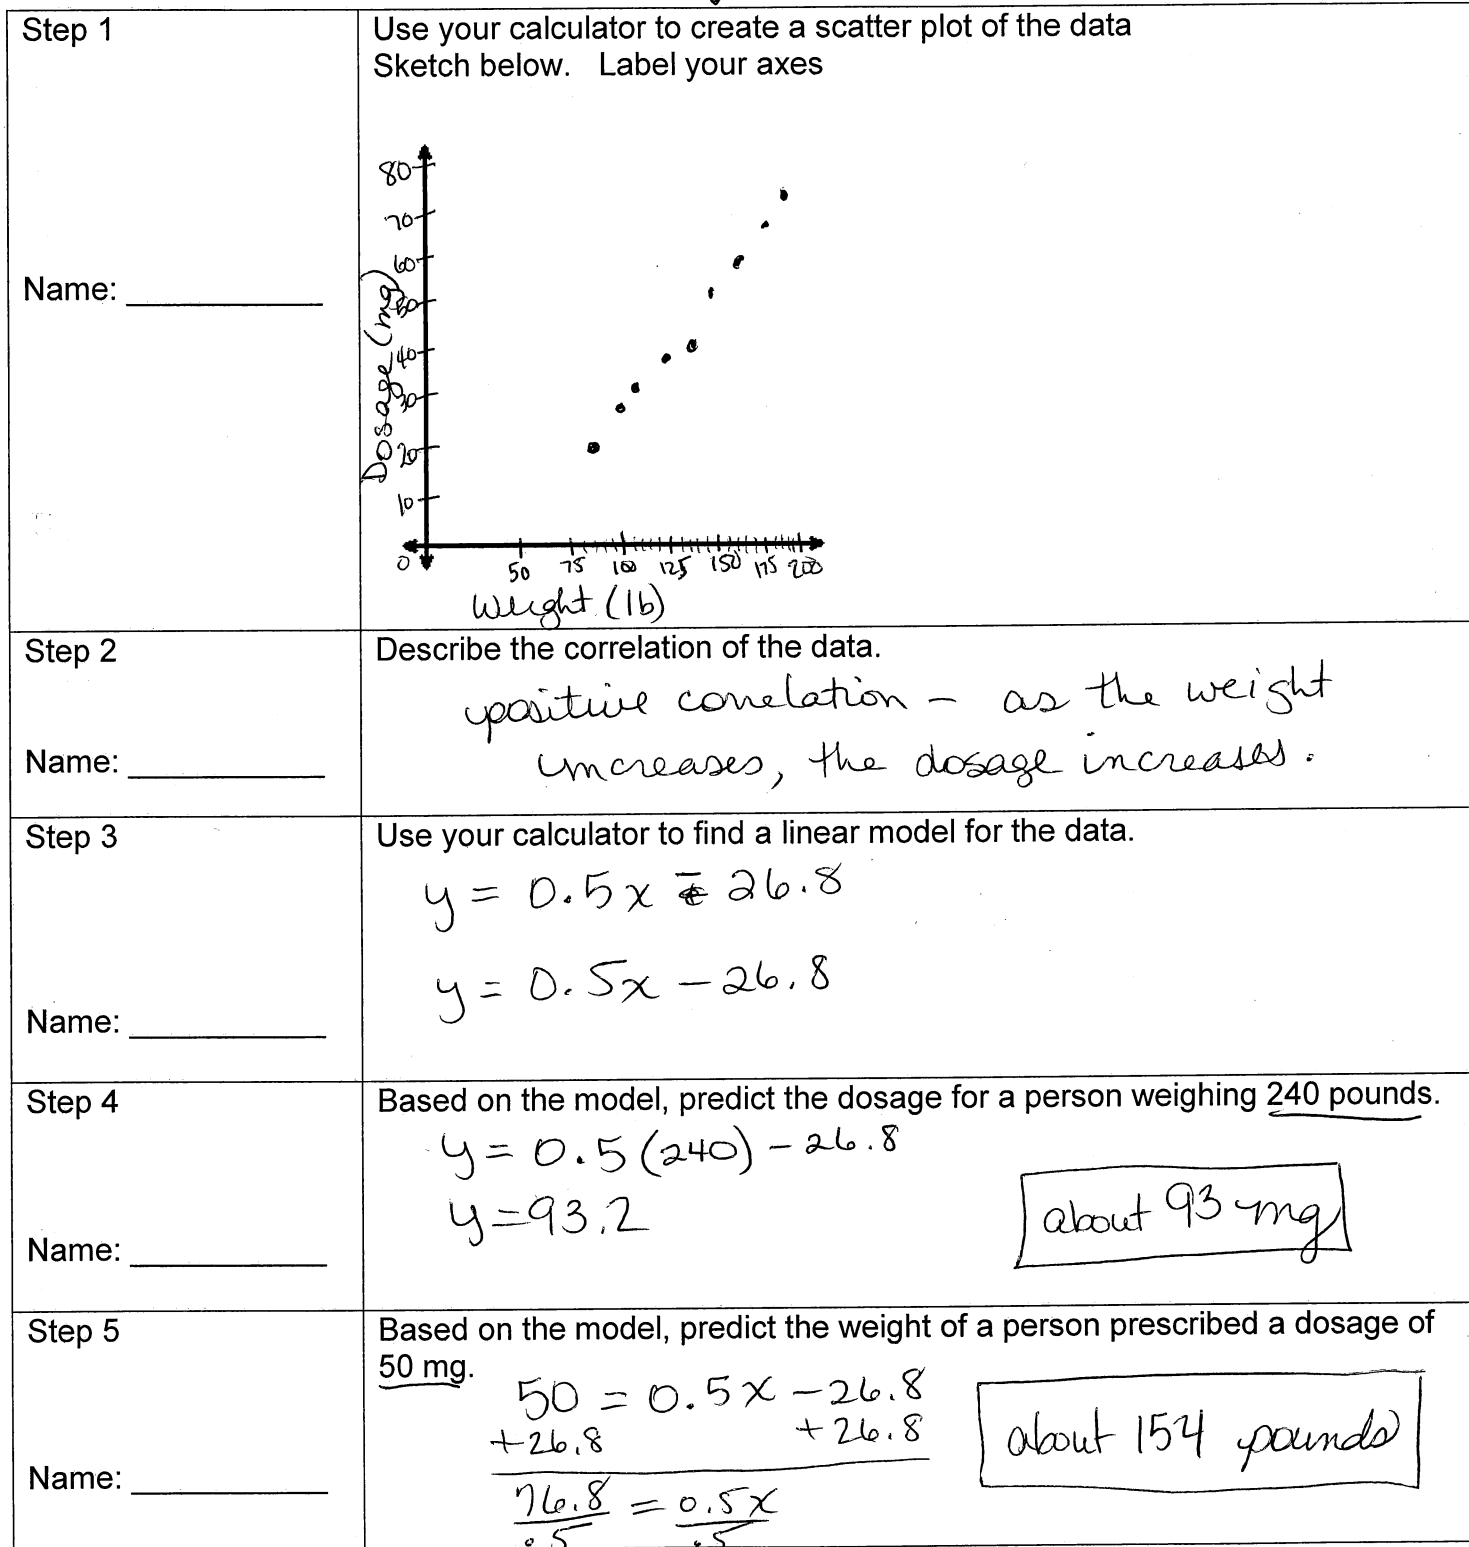 Step 1
Use your calculator to create a scatter plot of the data
Sketch below. Label your axes
80
70
60
50
40
30
20
10
Dosage (mg)
Name:
0 50 75 100 125 150 175 200
Weight (lb)
Step 2
Describe the correlation of the data.
positive correlation - as the weight
increases, the dosage increases.
Name:
Step 3
Use your calculator to find a linear model for the data.
y = 0.5x - 26.8
y = 0.5x - 26.8
Name:
Step 4
Based on the model, predict the dosage for a person weighing 240 pounds.
y = 0.5(240) - 26.8
y = 93.2
about 93 mg
Name:
Step 5
Based on the model, predict the weight of a person prescribed a dosage of
50 mg.
50 = 0.5x - 26.8
+26.8 +26.8
about 154 pounds
Name:
76.8 = 0.5x
.5 .5